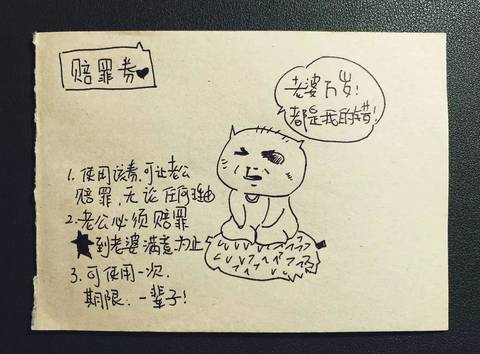 赔罪券♥
老婆万岁!
都是我的错!
1. 使用该券,可让老公
赔罪,无论任何理由
2. 老公必须赔罪
★到老婆满意为止
3. 可使用一次.
期限:一辈子!